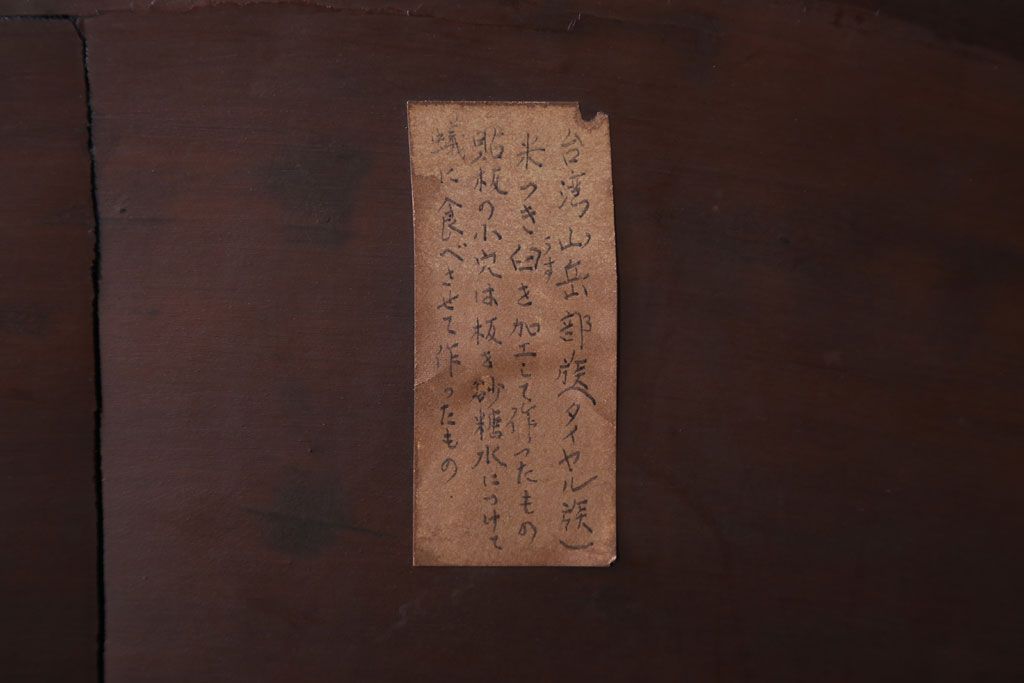 台湾山岳部族(タイヤル族)
米つき臼を加工して作ったもの
うす
貼板の小穴は板を砂糖水につけて
蟻に食べさせて作ったもの.